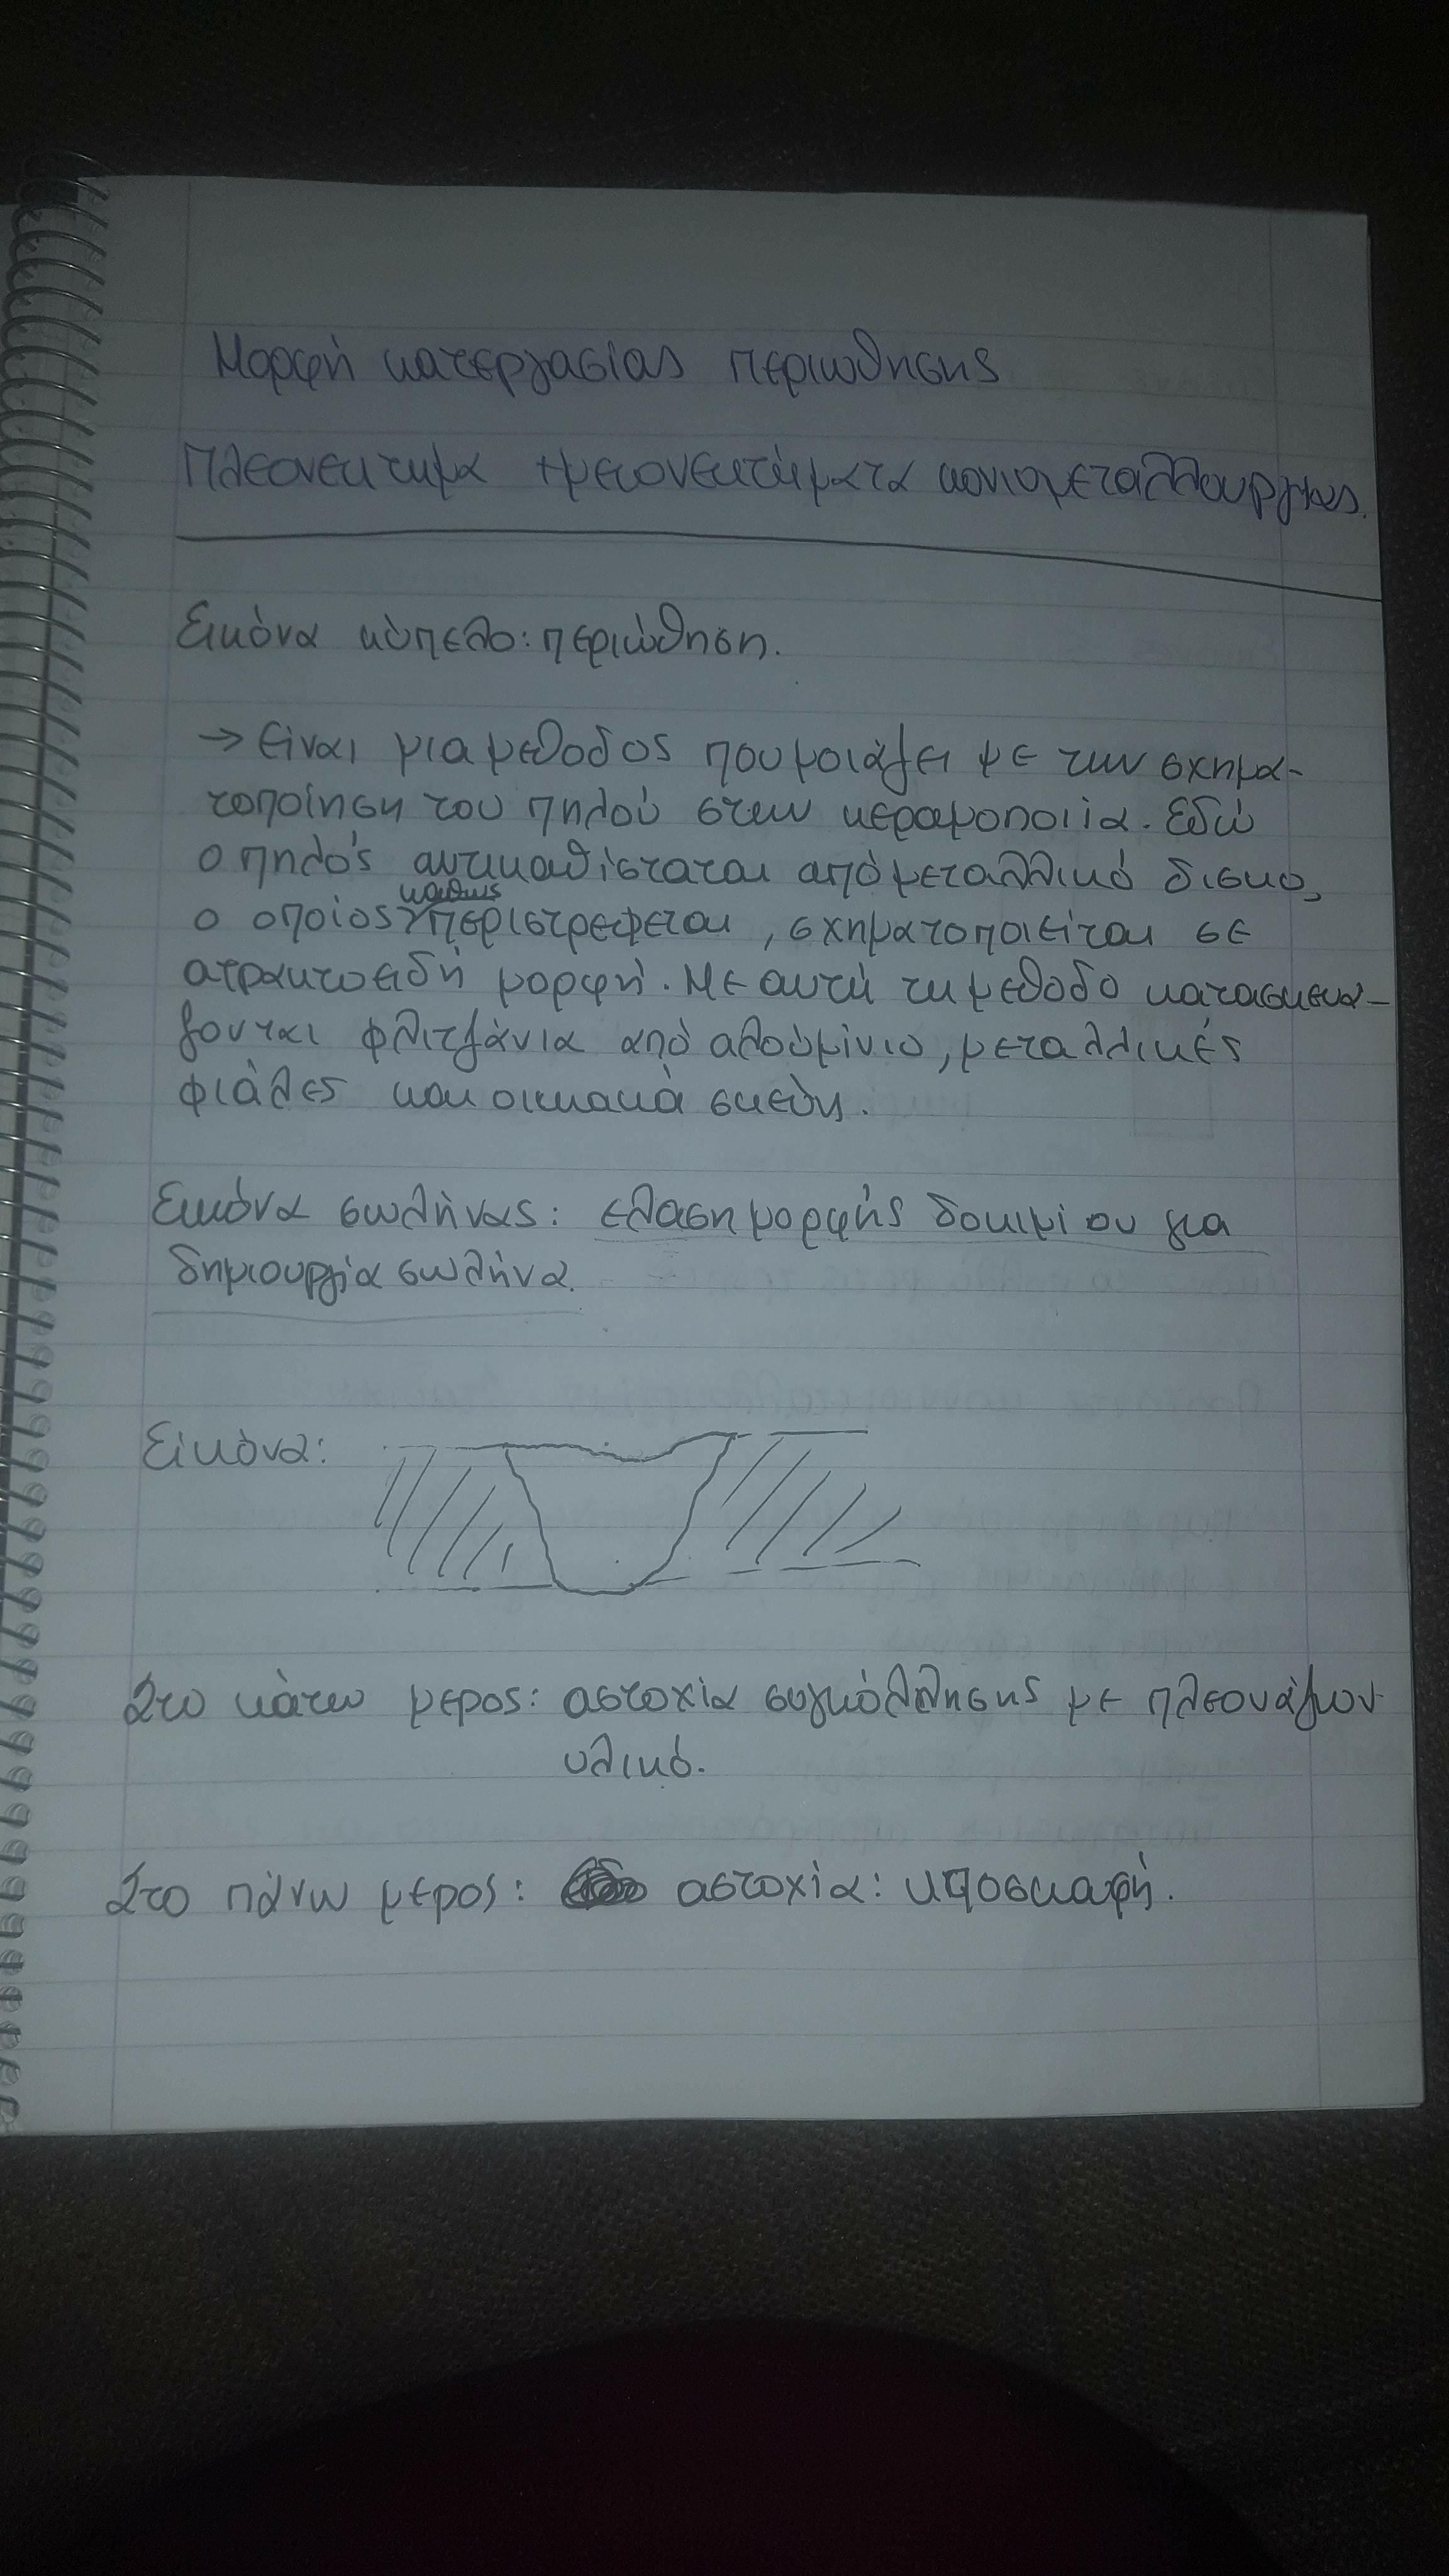 Μορφή κατεργασίας περιωθησης
Πλεονεκτημα + μειονεκτήματα κονιομεταλλουργιας.
Εικόνα κύπελο: περιώθηση.
→ Είναι μια μεθοδος που μοιάζει με την σχημα-
τοποίηση του πηλού στην κεραμοποιία. Εδώ
ο πηλός αντικαθίσταται από μεταλλικό δισκο,
καθως
ο οποίος περιστρεφεται, σχηματοποιείται σε
ατρακτοειδή μορφή. Με αυτή τη μεθοδο κατασκευα-
ζονται φλιτζάνια από αλουμίνιο, μεταλλικές
φιάλες και οικιακά σκεύη.
Εικόνα σωλήνας: ελαση μορφής δοκιμιου για
δημιουργία σωλήνα.
Εικόνα:
Στο κάτω μερος: αστοχία συγκόλλησης με πλεονάζον
υλικό.
Στο πάνω μερος: αστοχία: υποσκαφή.